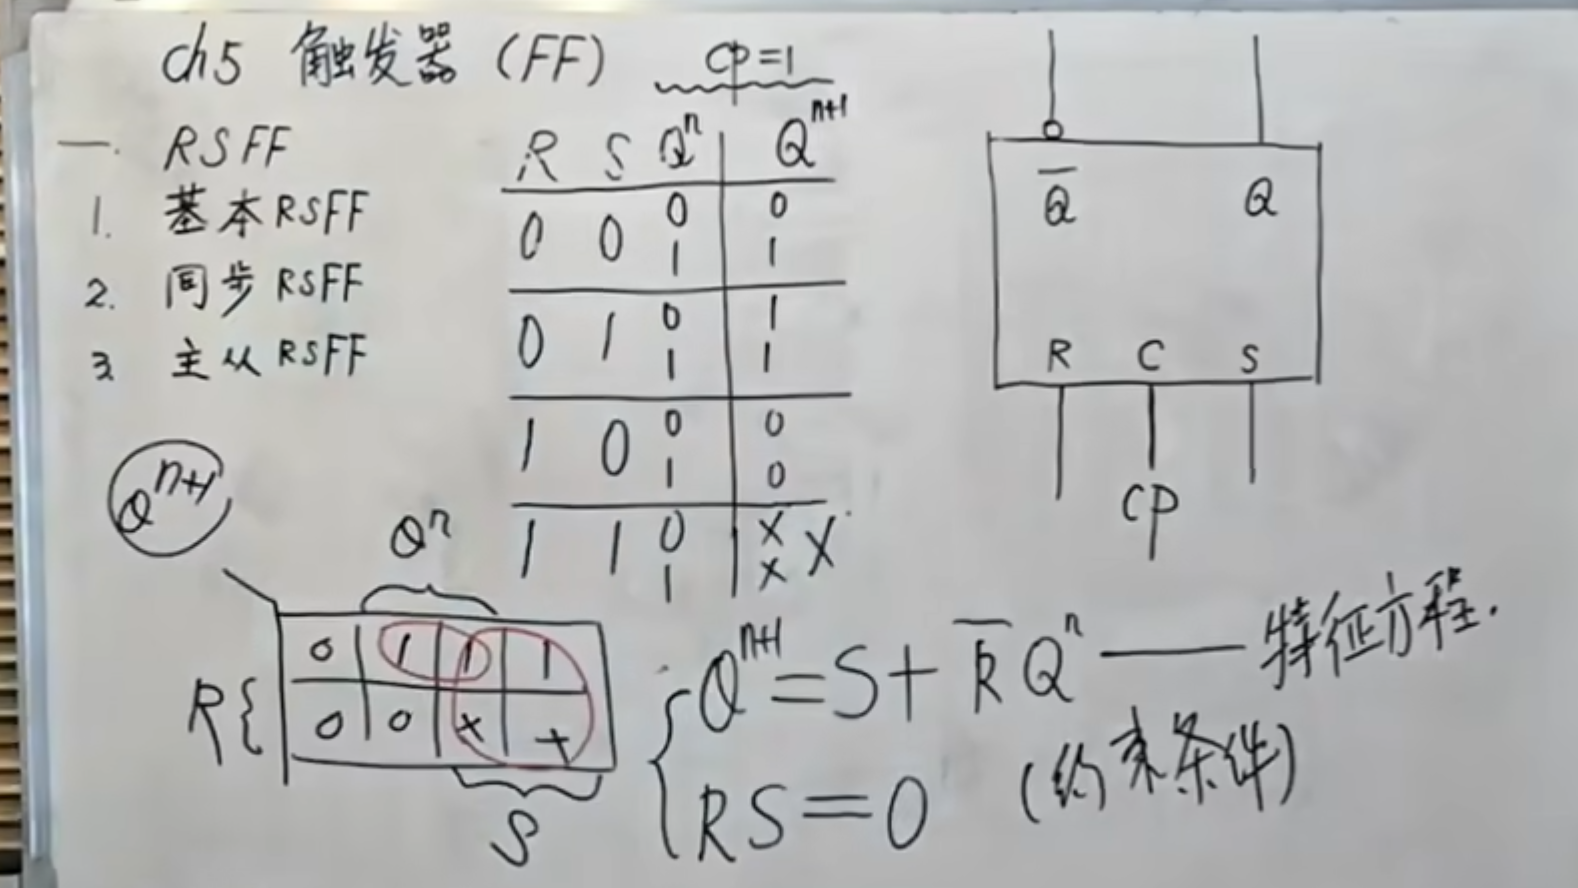 ch5 触发器 (FF)
一. RSFF
1. 基本RSFF
2. 同步RSFF
3. 主从RSFF
CP=1
R S Qⁿ Qⁿ⁺¹
0 0 0 0
1 1
0 1 0 1
1 1
1 0 0 0
1 0
1 1 0 × ×
1 ×
Q̅ Q
R C S
CP
Qⁿ⁺¹
Qⁿ
0 1 1 1
R{ 0 0 × ×
S
Qⁿ⁺¹=S+R̅Qⁿ —— 特征方程.
RS=0 (约束条件)